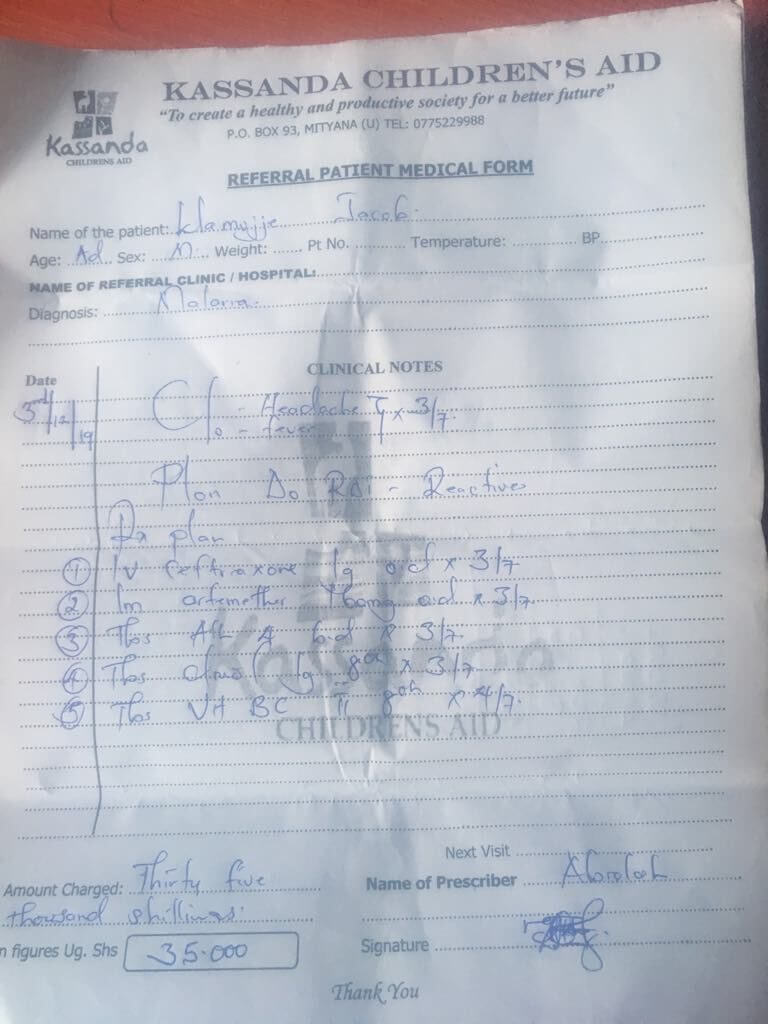 KASSANDA CHILDREN'S AID
"To create a healthy and productive society for a better future"
P.O. BOX 93, MITYANA (U) TEL: 0775229988
Kassanda
CHILDRENS AID
REFERRAL PATIENT MEDICAL FORM
Name of the patient: Jacob
Age: Ad Sex: M Weight: Pt No. Temperature: BP
NAME OF REFERRAL CLINIC / HOSPITAL:
Diagnosis: Malaria
Date CLINICAL NOTES
3rd/12/19 C/o - Headache x 3/7
- fever
Plan Do RDT - Reactive
Rx plan
1 IV ceftriaxone 1g o.d x 3/7
2 Im artemether od x 3/7
3 Tbs 4 bid x 3/7
4 Tbs 1g 8oh x 3/7
5 Tbs Vit BC II 8oh x 4/7
Kassanda
CHILDRENS AID
Next Visit
Amount Charged: Thirty five
thousand shillings
Name of Prescriber
n figures Ug. Shs 35.000
Signature
Thank You